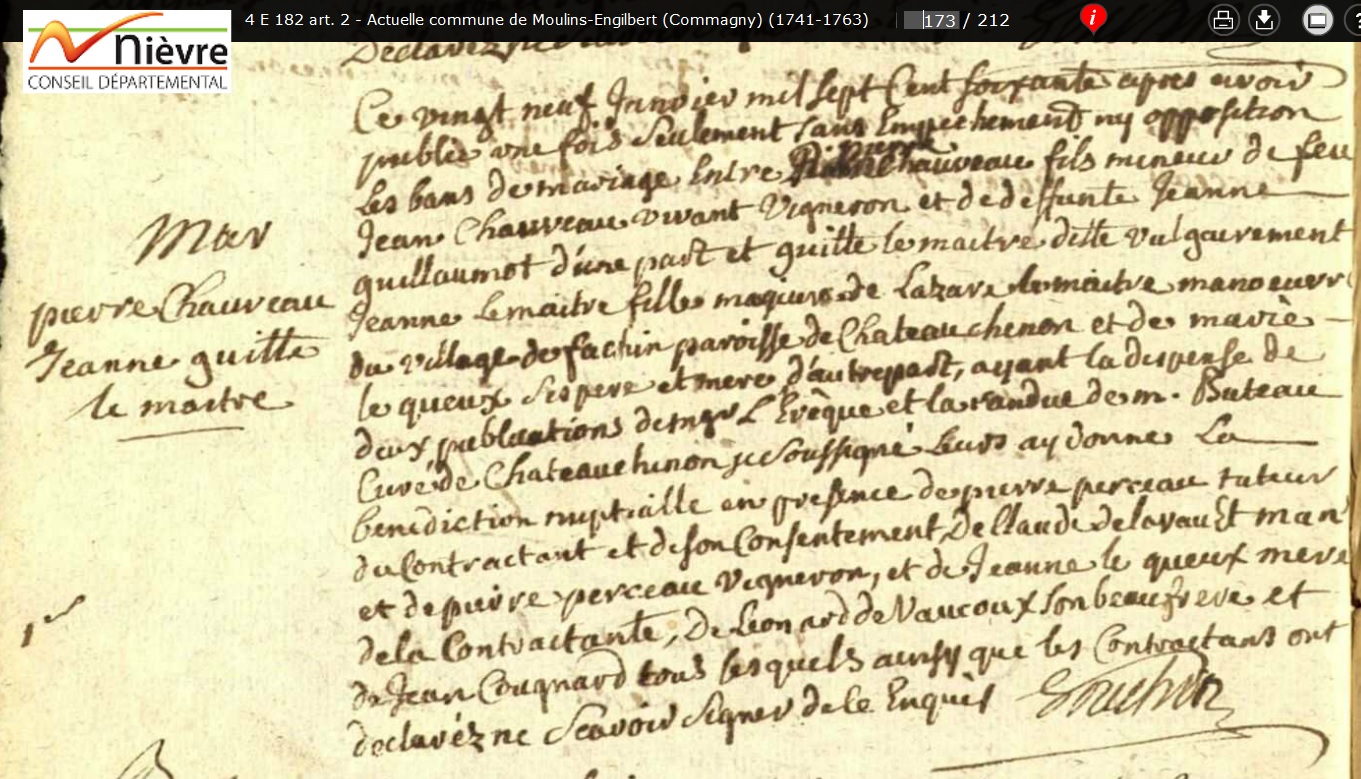 4 E 182 art. 2 - Actuelle commune de Moulins-Engilbert (Commagny) (1741-1763)
173 / 212
Nièvre
CONSEIL DÉPARTEMENTAL
Declarez ne
Mar
pierre Chauveau
Jeanne guille
le maitre
1er
Ce vingt neuf Janvier mil sept Cent soixante apres avoir
publié une fois seulement sans Empechement ny opposition
les bans de mariage Entre pierre Chauveau fils mineur de feu
Jean Chauveau vivant Vigneron et de deffunte Jeanne
guillaumot d'une part et guille le maitre ditte vulgairement
Jeanne le maitre fille majeure de Lazare le maitre manoeuvr
du village de fachin paroisse de Chateauchinon et de marie
le queux ses pere et mere d'autre part, ayant la dispense de
deux publications de mgr L'Evêque et la randue de m. Buteau
Curé de Chateauchinon je soussigné leurs ay donné La
benediction nuptialle en presence de pierre perceau tuteur
du Contractant et de son Consentement, De Claude delavault man
et de pierre perceau Vigneron, et de Jeanne le queux mere
de la Contractante, De Leonard de Vaucoux son beaufrere et
de Jean Cougnard tous lesquels ainsy que les Contractans ont
declaréz ne Scavoir Signer de ce Enquis